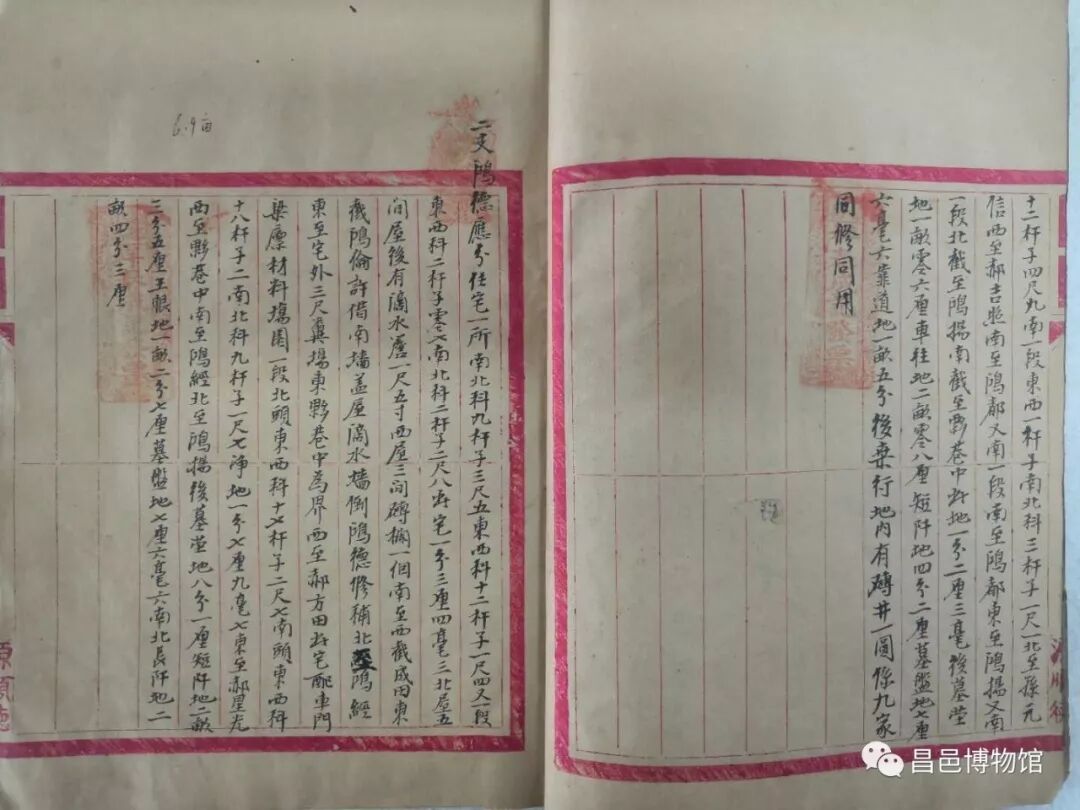 十二杆子四尺九南一段東西一杆子南北科三杆子一尺一北至孫元
信西至郝吉照南至鴻都又南一段南至鴻都東至鴻揚又南
一段北截至鴻揚南截至夥巷中出地一分二厘三毫後墓塋
地一畝零六厘車往地二畝零八厘短阡地四分二厘墓盤地七厘
六毫六靠道地一畝五分後棗行地内有磚井一圓係九家
同修同用
二支鴻德應分住宅一所南北科九杆子三尺五東西科十二杆子一尺四又一段
東西科二杆子零七南北科二杆子二尺八出宅一分三厘四毫三北屋五
間屋後有滴水簷一尺五寸西屋三間磚欄一個南至西截成田東
截鴻倫許借南墙盖屋滴水墙倒鴻德修補北至鴻經
東至宅外三尺糞場東夥巷中為界西至郝方田出宅配車門
梁檩材料塲園一段北頭東西科十七杆子二尺七南頭東西科
十八杆子二南北科九杆子一尺七净地一分七厘九毫七東至郝星光
西至夥巷中南至鴻經北至鴻揚後墓塋地八分一厘短阡地二畝
三分五厘王眼地一畝二分七厘墓盤地七厘六毫六南北長阡地二
畝四分三厘
6.9亩
源順德
昌邑博物馆